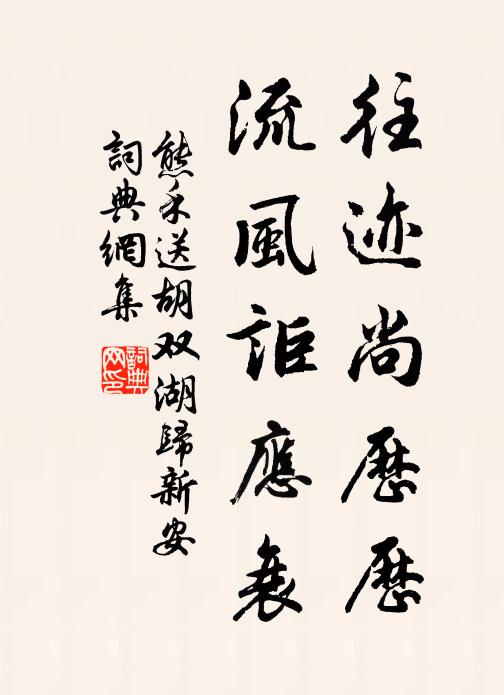 往迹尚歷歷
流風詎應衰
熊禾送胡双湖歸新安
詞典網集
詞典網印